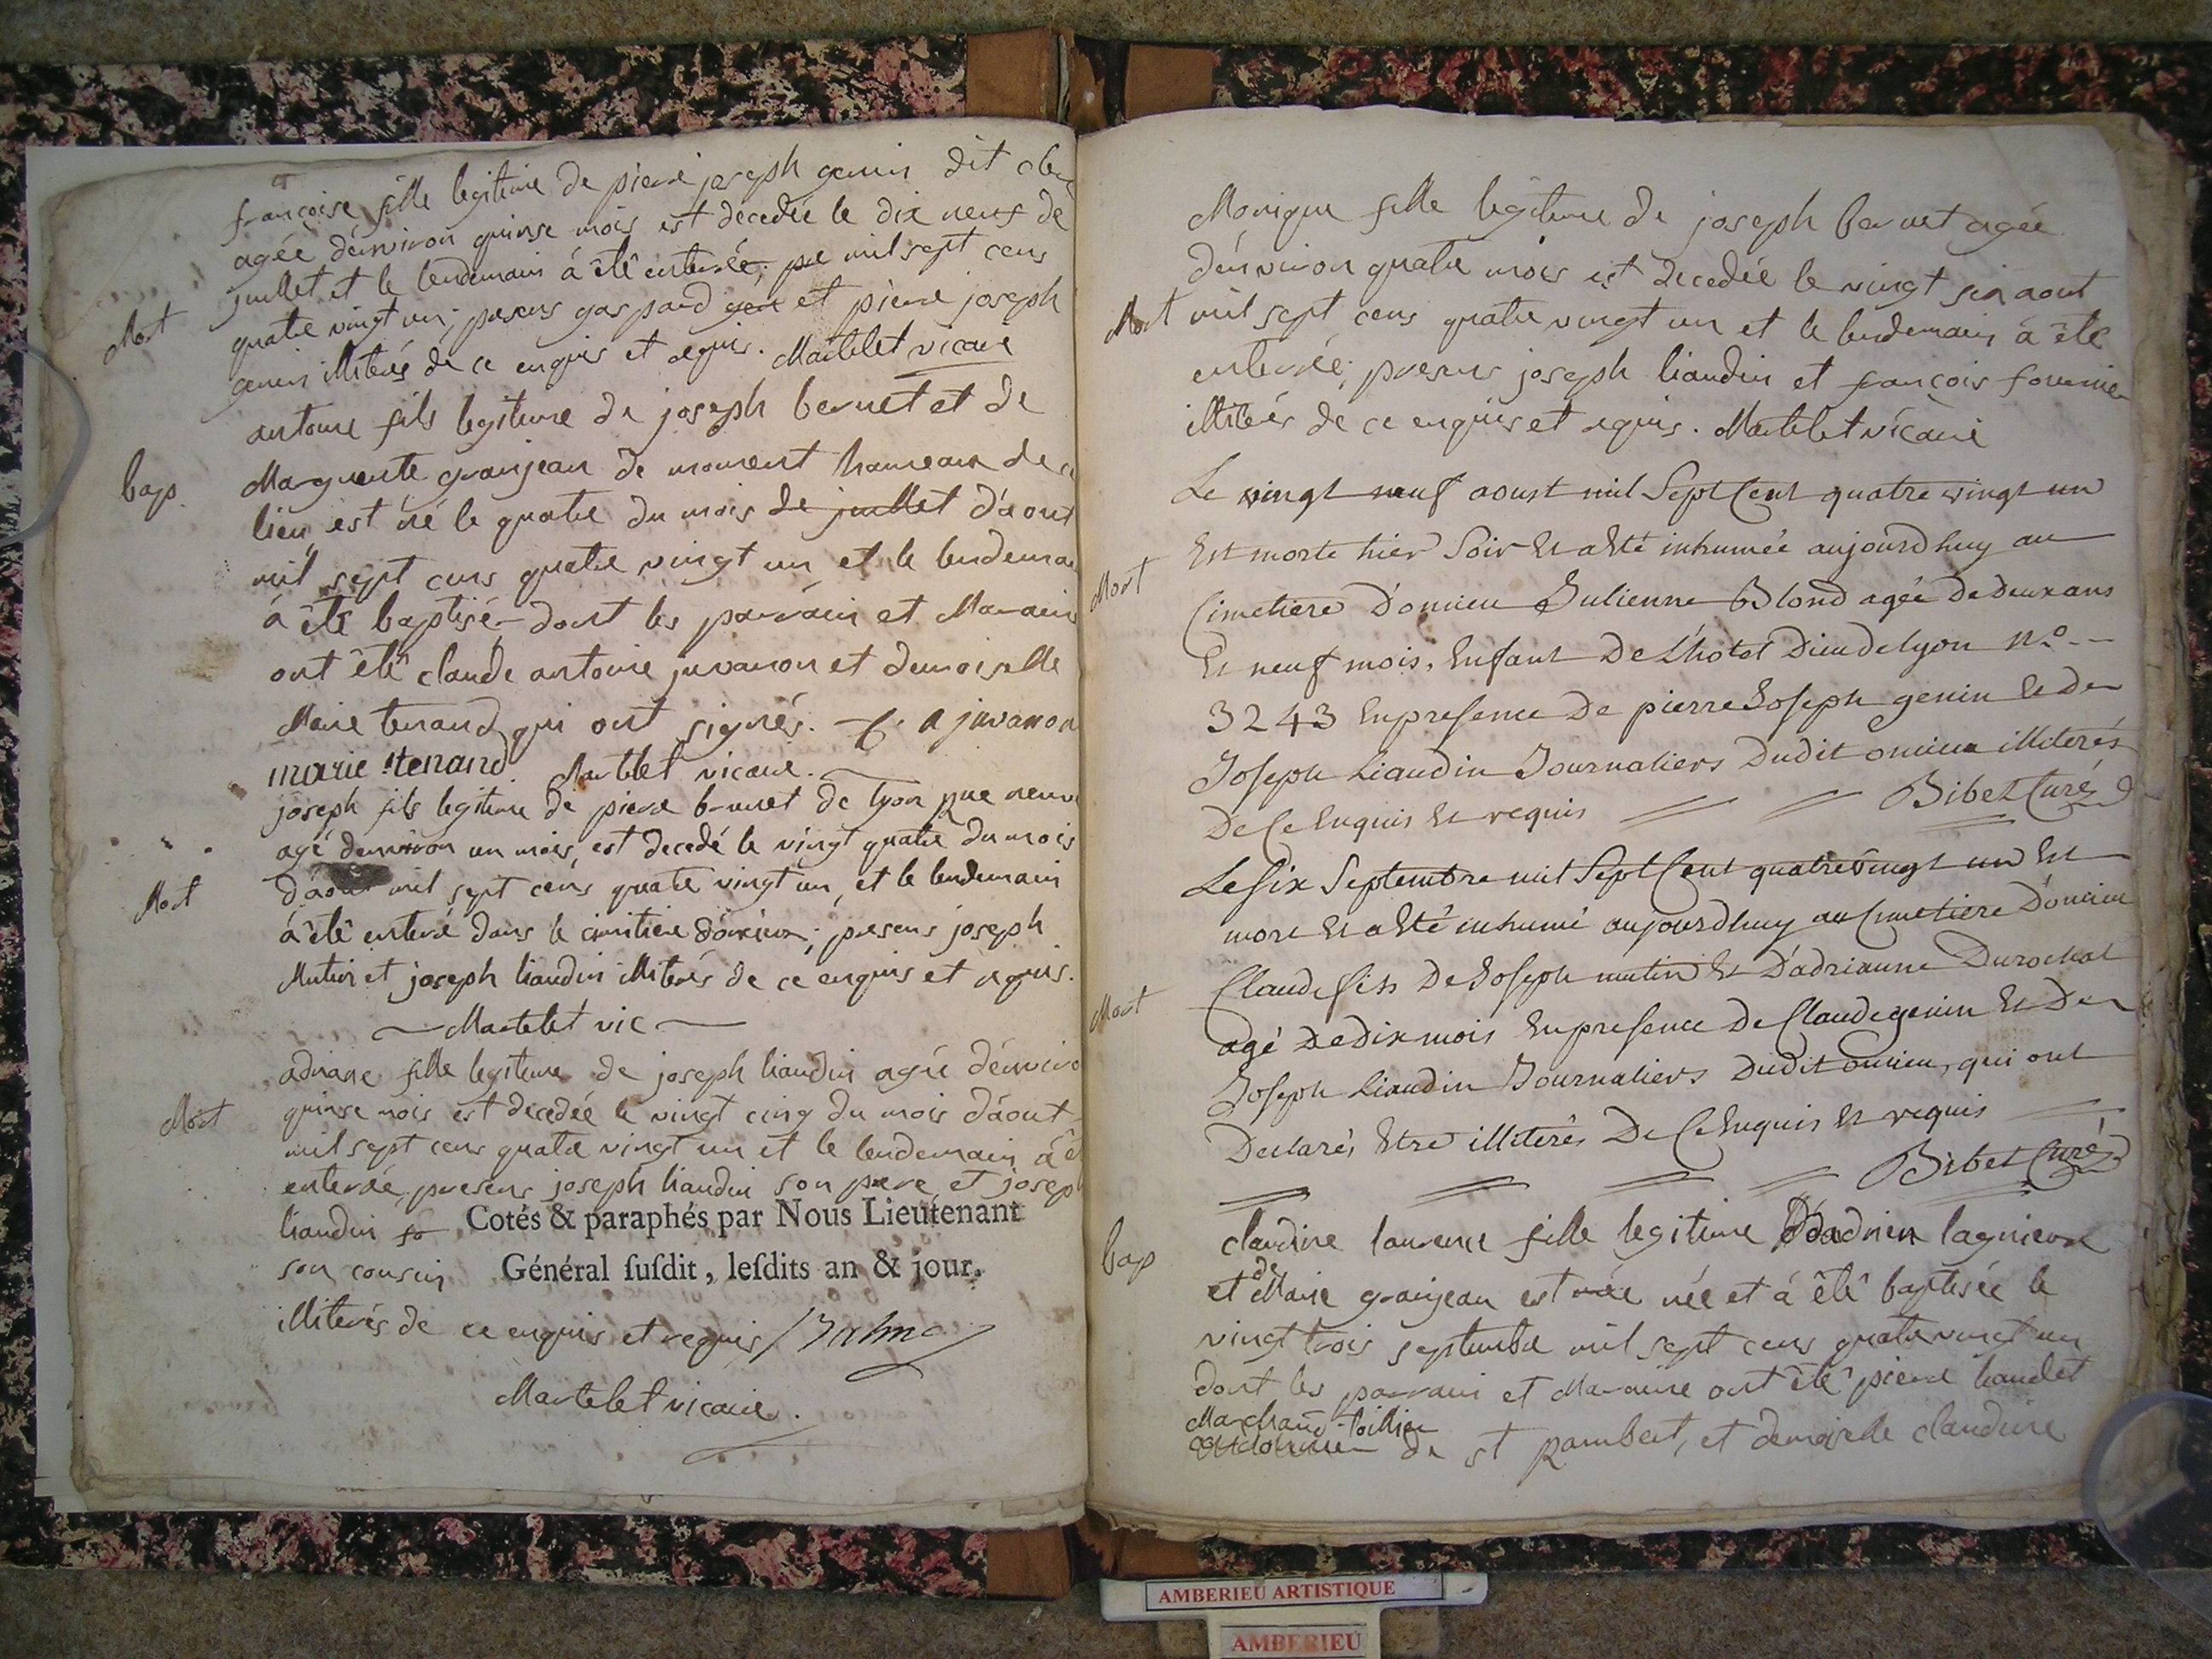 françoise fille legitime de pierre joseph genin dit
agée d'environ quinse mois est decedée le dix neuf de
juillet et le lendemain à été enterrée, pre mil sept cens
Mort
quatre vingt un; presens gaspard gen et pierre joseph
genin illiterés de ce enquis et requis. Martelet vicaire
antoine fils legitime de joseph bernet et de
bap.
Marguerite granjean de moment hameaux de
lieu est né le quatre du mois de juillet d'aout
mil sept cens quatre vingt un et le lendemai
à été baptisé dont les parrain et Marain
ont été claude antoine juvanon et demoiselle
Marie tenand qui ont signés. C. A juvanon
marie tenand. Martelet vicaire.
joseph fils legitime de pierre brunet de lyon rue neuv
agé d'environ un mois, est decedé le vingt quatre du mois
Mort
d'aout mil sept cens quatre vingt un, et le lendemain
à été enterré dans le cimitiere d'oncieux; presens joseph
Mutin et joseph liaudin illiterés de ce enquis et requis.
Martelet vic
adriane fille legitime de joseph liaudin agée d'enviro
Mort
quinse mois est decedée le vingt cinq du mois d'aout
mil sept cens quatre vingt un et le lendemain à é
enterrée, presens joseph liaudin son pere et josep
liaudin so Cotés & paraphés par Nous Lieutenant
son cousin Général ſuſdit, leſdits an & jour.
illiterés de ce enquis et requis
Martelet vicaire.
Monique fille legitime de joseph bernet agée
d'environ quatre mois est decedée le vingt six aout
Mort
mil sept cens quatre vingt un et le lendemain à été
enterrée; presens joseph liaudin et françois fournier
illiterés de ce enquis et requis. Martelet vicaire
Le vingt neuf aoust mil Sept Cent quatre vingt un
Est morte hier Soir Et a Eté inhumée aujourdhuy au
Mort
Cimetiere D'oncieu Julienne Blond agée De deux ans
Et neuf mois, Enfant De L'hotel Dieu de lyon N.o
3243 En presence De pierre Joseph genin Et De
Joseph Liaudin Journaliers Dudit oncieu illiterés
De Ce Enquis Et requis Bibet Curé
Le Six Septembre mil Sept Cent quatre vingt un Est
mort Et a Eté inhumé aujourdhuy au Cimetiere D'oncieu
Claude fils De Joseph mutin Et D'adrianne Durochat
Mort
agé De Dix mois En presence De Claude genin Et De
Joseph Liaudin Journaliers Dudit oncieu, qui ont
Declarés Etre illiterés De Ce Enquis Et requis
Bibet Curé
claudine laurence fille legitime D'adrien lagnieux
bap
et de Marie granjean est née née et à été baptisée le
vingt trois septembre mil sept cens quatre vingt un
dont les parrain et Maraine ont été pierre liaudet
Marchand
de st Rambert, et demoiselle claudine
AMBERIEU ARTISTIQUE
AMBERIEU